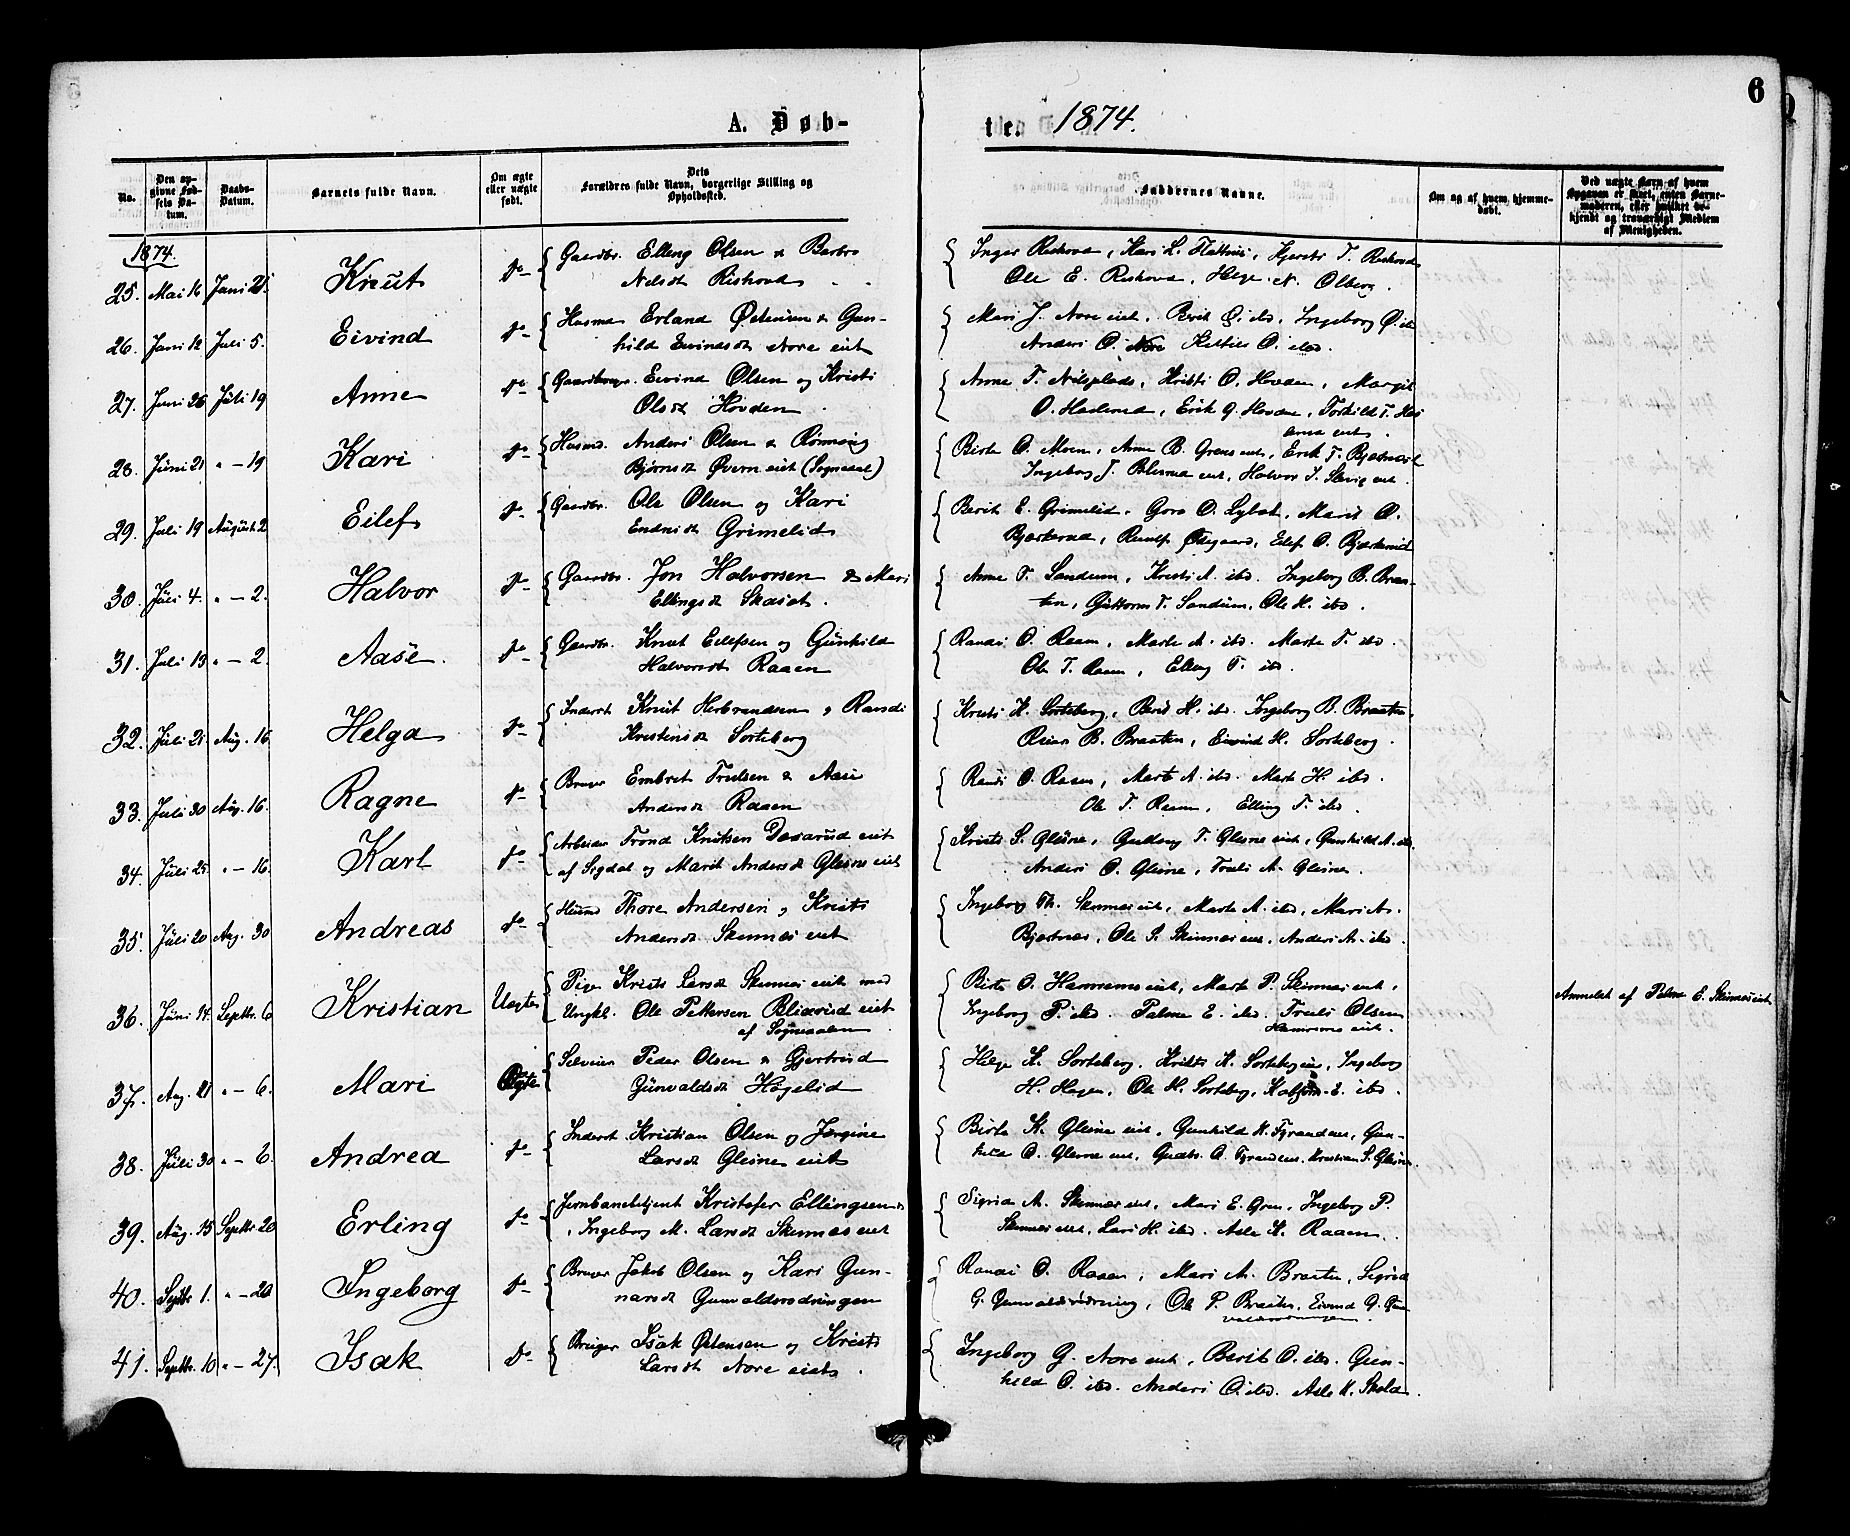 6
A. Døb-
te. 1874.
No.
Den opgivne Fødsels Datum.
Daabs-Datum.
Barnets fulde Navn.
Om ægte eller uægte født.
Dets Forældres fulde Navn, borgerlige Stilling og Opholdssted.
Faddernes Navne.
Om og af hvem hjemmedøbt.
Ved uægte Børn af hvem Opgaven er skeet, enten Barnemoderen, eller hvilket bekjendt og troværdigt Medlem af Menigheden.
1874.
25. Mai 16 Juni 25 Knut do Gaardbr. Elling Olsen & Barbro
Nelsdt Riskovd
Inger Riskovd, Kari L. Flattem, Kjersti T. Riskovd
Ole E. Riskovd, Helge N. Olberg.
26. Juni 12 Juli 5. Eivind do Husmd Erland Østensen & Gun-
hild Eivindsdt Nore eiet
Mari J. Nore eiet, Berit Ø. ibd, Ingeborg Ø. ib
Anders O. Nore Kittil O. ibd.
27. Juni 26 Juli 19 Anne do Gaardbruger Eivind Olsen og Kristi
Olsdt Hovden
Anne T. Nilsplads, Kristi O. Hovden, Margit
O. Haslerud, Erik G. Hovden, Torkild T. Has
lerud eiet.
28. Juni 21 " - 19 Kari do Husmd. Anders Olsen & Rønnaug
Bjørnsdt Øvern eiet (Sognedal)
Birte O. Moen, Anne B. Grøns eiet, Erik T. Bjertnæs
Ingeborg J. Blessa eiet, Halvor S. Slevig eiet.
29. Juli 19 August 2 Eilef do Gaardbr. Ole Olsen og Kari
Endresdt Grimelid
Berit E. Grimelid, Goro O. Lybæk, Marit O.
Bjøkerud, Runolf Ødegaard, Eilef O. Bjøkerud
30. Juli 4. " - 2. Halvor do Gaardbr. Jon Halvorsen & Mari
Ellingsdt Skaset.
Anne T. Sandum, Kristi A. ibd. Ingeborg B. Braa-
ten, Guttorm T. Sandum, Ole K. ibd.
31. Juli 13 " - 2. Aase do Gaardbr. Knut Eilefsen og Gunhild
Halvorsdt Raaen
Randi O. Raaen, Marte A. ibd. Marte T. ibd.
Ole T. Raaen, Elling T. ibd.
32. Juli 21 Aug. 16 Helga do Inderst Knut Herbrandsen & Randi
Kristensdt Sorteberg
Kristi K. Sorteberg, Berit H. ibd. Ingeborg B. Braaten,
Reier B. Braaten, Eivind H. Sorteberg.
33. Juli 30 Aug. 16. Ragne do Bruger Embret Trulsen & Aase
Andersdt Raaen
Randi O. Raaen, Marte A. ibd. Marte H. ibd.
Ole T. Raaen, Elling T. ibd.
34. Juli 25 " - 16. Karl do Arbeider Trond Knutsen Daxarud eiet
af Sigdal og Marit Andersdt Glesne eiet
Kristi S. Glesne, Guldbrg T. Glesne eiet, Gunhild A. ibd.
Anders O. Glesne, Truls A. Glesne.
35. Juli 20 Aug. 30 Andreas do Husmd Thore Andersen & Kristi
Andersdt Skinnes eiet
Ingeborg Th. Skinnes eiet, Marte A. ibd, Mari A.
Bjertnæs, Ole P. Skinnes eiet, Anders A. ibd.
36. Juni 14. Septbr. 6 Kristian Uægte Pige Kristi Larsdt Skinnes eiet med
Ungkl. Ole Pettersen Blixrud eiet
af Sognedalen
Birte O. Hammersme eiet, Marte P. Skinnes eiet,
Ingeborg P. ibd. Palme E. ibd. Truls Olsen
Hammersme eiet.
Anmeldt af Palme E. Skinnes eiet
37. Aug. 21 " - 6. Mari Ægte Selveier Peder Olsen & Gjertrud
Gunvaldsdt Høgelid
Helge K. Sorteberg. Kristi K. Sortebergeie, Ingeborg
H. Hagen, Ole H. Sorteberg, Kolbjørn E. ibd.
38. Juli 30 " - 6. Andrea do Inderst Kristian Olsen og Jørgine
Larsdt Glesne eiet
Birte K. Glesne eiet, Gunhild K. Fyrand eiet, Gun-
hild O. Glesne eiet, Gudbr. A. Fyrand eiet. Kristian S. Glesne.
39. Aug. 15 Septbr. 20 Erling do Jernbanebetjent Kristofer Ellingsen &
Ingeborg M. Larsdt Skinnes eiet
Sigrid A. Skinnes eiet, Mari E. Gren, Ingeborg P.
Skinnes eiet, Lars H. ibd. Asle K. Raaen.
40. Septbr. 1. " - 20 Ingeborg do Bruger Jakob Olsen og Kari Gun-
narsdt Gunvaldsrodningen
Randi O. Raaen, Mari A. Braaten, Sigrid
G. Gunvaldsrødning, Ole P. Braaten, Eivind G. Gun
valdsrodningen.
41. Septbr. 10 " - 27. Isak do Bruger Isak Østensen og Kristi
Larsdt Nore eiet.
Ingeborg G. Nore eiet, Berit O. ibd. Gun-
hild O. ibd. Anders O. ibd. Asle K. Skold.